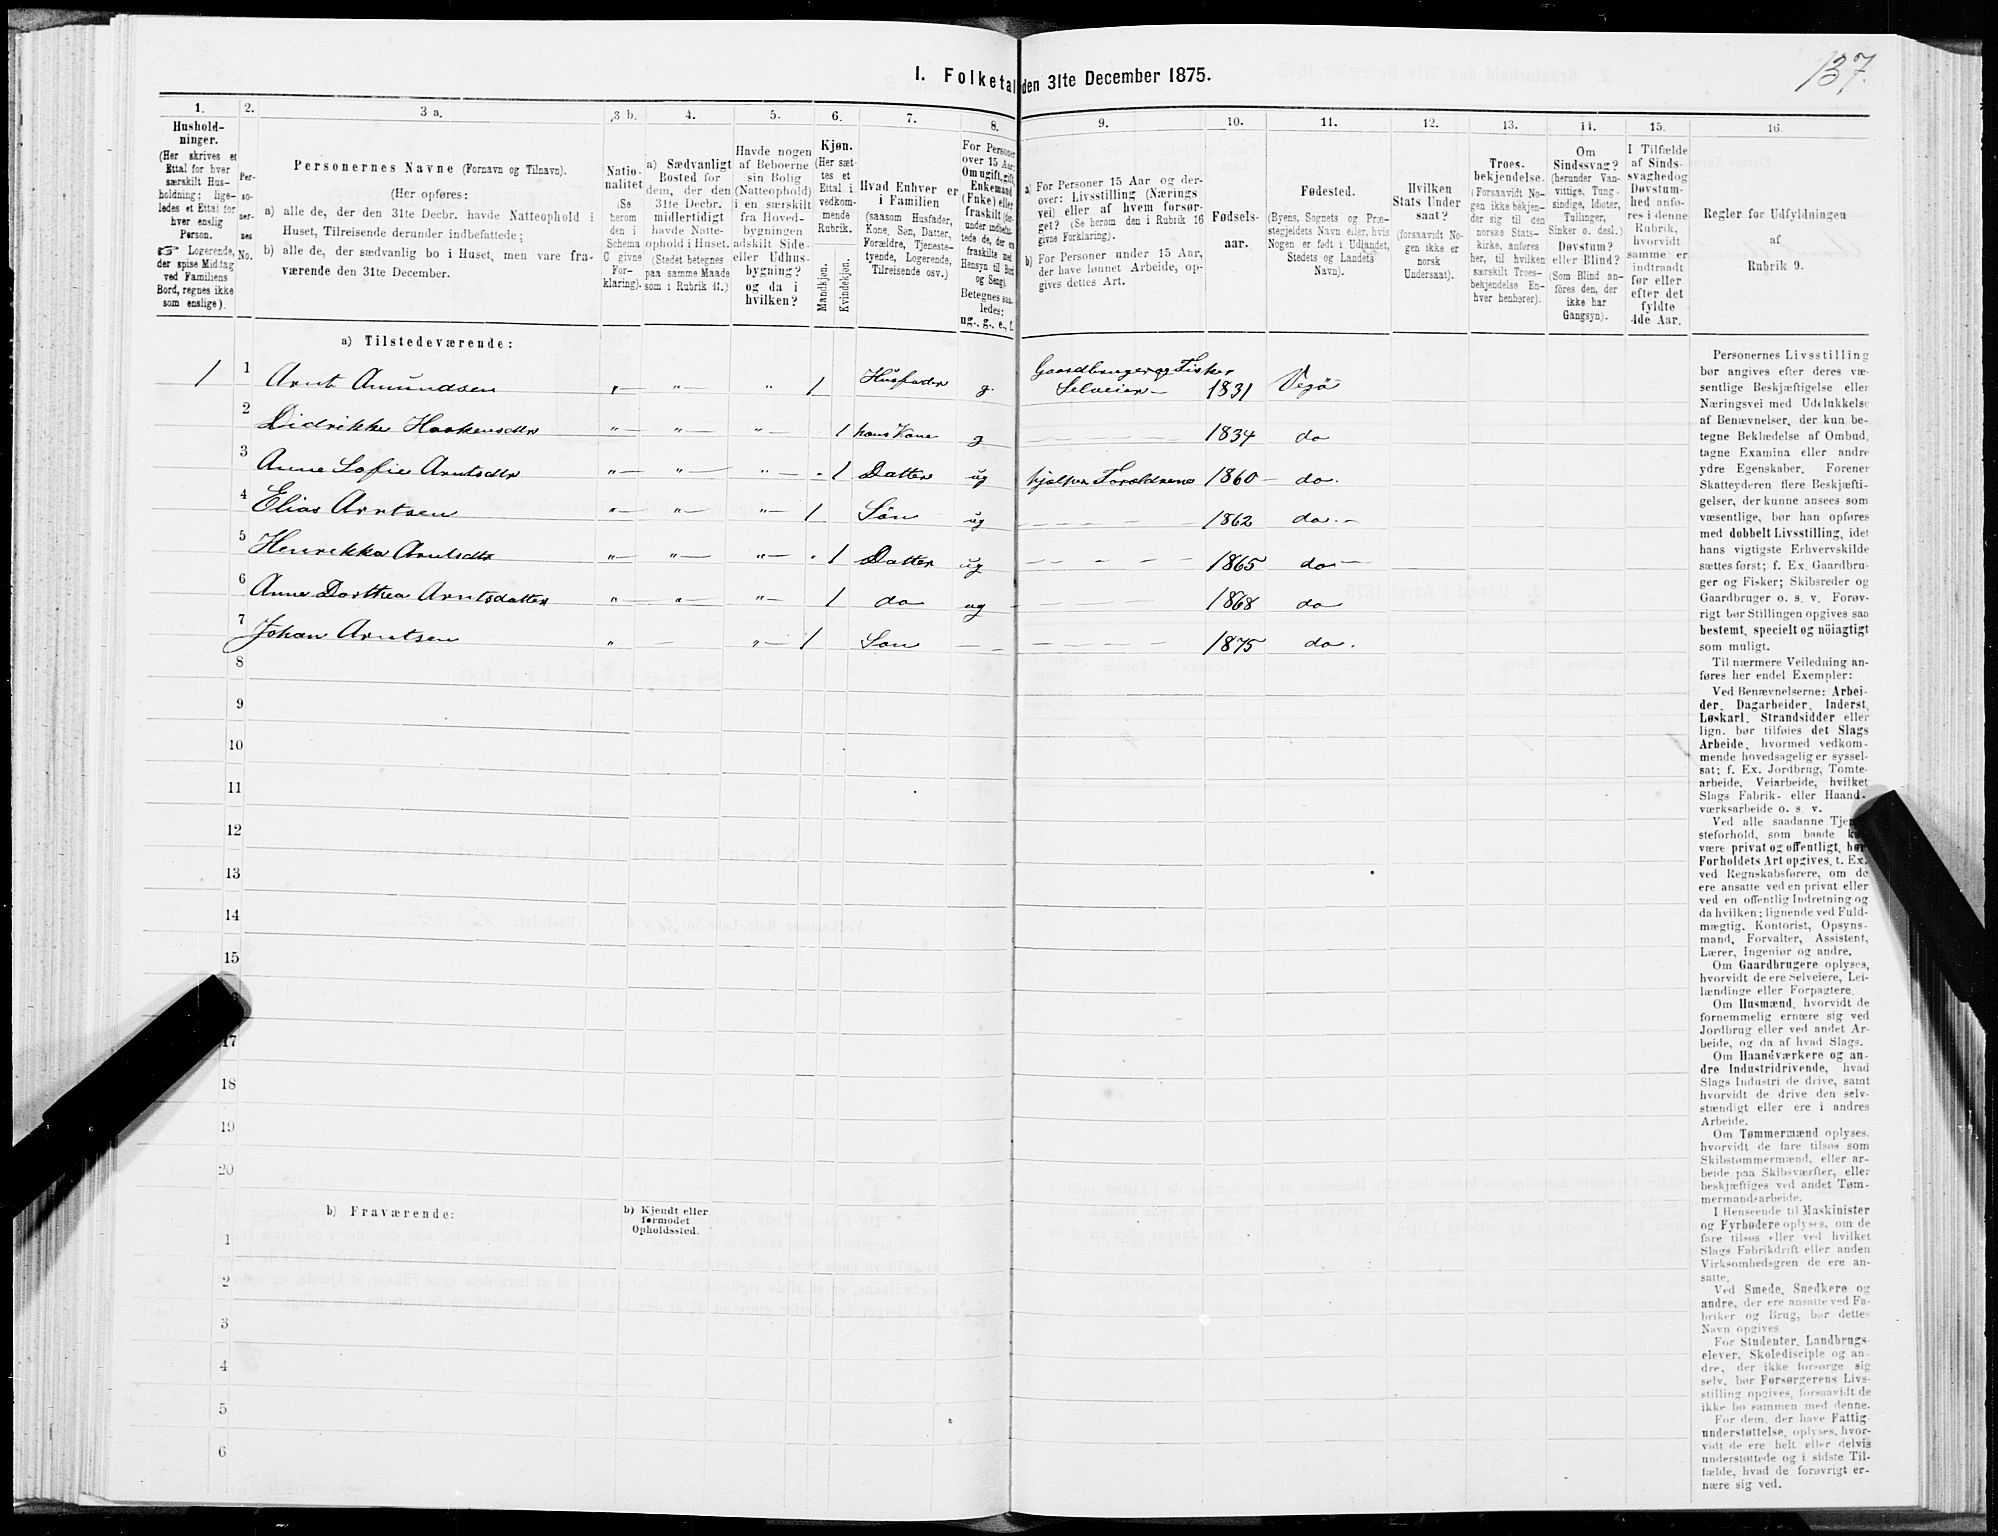 137.
I. Folketal den 31te December 1875.
1.
2.
3 a.
3 b.
4.
5.
6.
7.
8.
9.
10.
11.
12.
13.
14.
15.
16.
Hushold-
ninger.
(Her skrives et
Ettal for hver
særskilt Hus-
holdning; lige-
ledes et Ettal for
hver enslig
Person.
☞ Logerende,
der spise Middag
ved Familiens
Bord, regnes ikke
som enslige).
Per-
so-
ner-
nes
No.
Personernes Navne (Fornavn og Tilnavn).
(Her opføres:
a) alle de, der den 31te Decbr. havde Natteophold i
Huset, Tilreisende derunder indbefattede;
b) alle de, der sædvanlig bo i Huset, men vare fra-
værende den 31te December.
Natio-
nalitet
(Se
herom
den i
Schema
C givne
For-
klaring).
a) Sædvanligt
Bosted for
dem, der den
31te Decbr.
midlertidigt
havde Natte-
ophold i Huset.
(Stedet betegnes
paa samme Maade
som i Rubrik 11.)
Havde nogen
af Beboerne
sin Bolig
(Natteophold)
i en særskilt
fra Hoved-
bygningen
adskilt Side-
eller Udhus-
bygning?
og da i
hvilken?
Kjøn.
(Her sæt-
tes et
Ettal i
vedkom-
mende
Rubrik.
Mandkjøn.
Kvindekjøn.
Hvad Enhver er
i Familien
(saasom Husfader,
Kone, Søn, Datter,
Forældre, Tjeneste-
tyende, Logerende,
Tilreisende osv.)
For Personer
over 15 Aar:
Om ugift, gift,
Enkemand
(Enke) eller
fraskilt (der-
under indbefat-
tede de, der er
fraskilte med
Hensyn til Bord
og Seng).
Betegnes saa-
ledes:
ug., g., e., f.
a) For Personer 15 Aar og der-
over: Livsstilling (Nærings
vei) eller af hvem forsør-
get? (Se herom den i Rubrik 16
givne Forklaring).
b) For Personer under 15 Aar,
der have lønnet Arbeide, op-
gives dettes Art.
Fødsels-
aar.
Fødested.
(Byens, Sognets og Præ-
stegjeldets Navn eller, hvis
Nogen er født i Udlandet,
Stedets og Landets
Navn).
Hvilken
Stats Under
saat?
(forsaavidt No-
gen ikke er
norsk
Undersaat).
Troes-
bekjendelse.
(Forsaavidt No-
gen ikke bekjen-
der sig til den
norske Stats-
kirke, anføres
her, til hvilken
særskilt Troes-
bekjendelse En-
hver henhører).
Om
Sindssvag?
(herunder Van-
vittige, Tung-
sindige, Idioter,
Tullinger,
Sinker o. desl.)
Døvstum?
eller Blind?
(Som Blind an-
føres den, der
ikke har
Gangsyn).
I Tilfælde
af Sinds-
svaghed og
Døvstum-
hed anfø-
res i denne
Rubrik,
hvorvidt
samme er
indtraadt
før eller
efter det
fyldte
4de Aar.
Regler for Udfyldningen
af
Rubrik 9.
a) Tilstedeværende:
1 1 Arnt Amundsen „— „— „ 1 Husfader g. Gaardbruger og Fisker
Selveier — 1831 Vegö
2 Didrikke Haakensdtr „— „— „— 1 hans Kone g — — — — 1834 do
3 Anne Sofie Arntsdtr „— „— „— - 1 Datter ug hjelper Foreldrene 1860 — do.
4 Elias Arntsen „— „— „— 1 Sön ug — — — — 1862 do. —
5 Henrikka Arntsdtr „— „— „— - 1 Datter ug — — — — 1865 do —
6 Anne Dorthea Arntsdatter „— „— „— 1 do ug — — — — 1868 do
7 Johan Arntsen „ — „— 1 Son — — — — — — 1875 do.
8
9
10
11
12
13
14
15
17
18
19
20
b) Fraværende:
b) Kjendt eller
formodet
Opholdssted.
1
2
3
4
5
6
Personernes Livsstilling
bør angives efter deres væ-
sentlige Beskjæftigelse eller
Næringsvei med Udelukkelse
af Benævnelser, der kun be-
tegne Beklædelse af Ombud,
tagne Examina eller andre
ydre Egenskaber. Forener
Skatteyderen flere Beskjæfti-
gelser, der kunne ansees som
væsentlige, bør han opføres
med dobbelt Livsstilling, idet
hans vigtigste Erhvervskilde
sættes først; f. Ex. Gaardbru-
ger og Fisker; Skibsreder og
Gaardbruger o. s. v. Forøv-
rigt bør Stillingen opgives saa
bestemt, specielt og nöiagtigt
som muligt.
Til nærmere Veiledning an-
føres her endel Exempler:
Ved Benævnelserne: Arbei-
der, Dagarbeider, Inderst,
Løskarl, Strandsidder eller
lign. bør tilføies det Slags
Arbeide, hvormed vedkom-
mende hovedsagelig er syssel-
sat; f. Ex. Jordbrug, Tomte-
arbeide, Veiarbeide, hvilket
Slags Fabrik- eller Haand-
værksarbeide o. s. v.
Ved alle saadanne Tje-
steforhold, som baade
være privat og offentligt, bør
Forholdets Art opgives, t. Ex.
ved Regnskabsførere, om de
ere ansatte ved en privat eller
ved en offentlig Indretning og
da hvilken; lignende ved Fuld-
mægtig, Kontorist, Opsyns-
mand, Forvalter, Assistent,
Lærer, Ingeniør og andre.
Om Gaardbrugere oplyses,
hvorvidt de ere Selveiere, Lei-
lændinge eller Forpagtere.
Om Husmænd, hvorvidt de
fornemmelig ernære sig ved
Jordbrug eller ved andet Ar-
beide, og da af hvad Slags.
Om Haandværkere og an-
dre Industridrivende, hvad
Slags Industri de drive, samt
hvorvidt de drive den selv-
stændigt eller ere i andres
Arbeide.
Om Tømmermænd oplyses,
hvorvidt de fare tilsøs som
Skibstømmermænd, eller ar-
beide paa Skibsværfter, eller
beskjæftiges ved andet Tøm-
mermandsarbeide.
I Henseende til Maskinister
og Fyrbødere oplyses, om de
fare tilsøs eller ved hvilket
Slags Fabrikdrift eller anden
Virksomhedsgren de ere an-
satte.
Ved Smede, Snedkere og
andre, der ere ansatte ved Fa-
briker og Brug, bør dettes
Navn opgives
For Studenter, Landbrugs-
elever, Skoledisciple og an-
dre, der ikke forsørge sig
selv, bør Forsørgerens Livs-
stilling opgives, forsaavidt de
ikke bo sammen med denne.
For dem, der have Fattig-
understøttelse, oplyses, hvor-
vidt de ere helt eller delvis
understøttede og i sidste Til-
fælde, hvad de forøvrigt er-
nære sig ved.